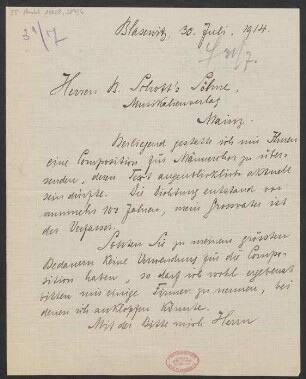 31/7
Blasewitz, 30. Juli, 1914.
Herren B. Schott's Söhne,
Musikalienverlag
Mainz.
Beiliegend gestatte ich mir Ihnen
eine Composition für Männerchor zu über-
senden, deren Text augenblicklich aktuell
sein dürfte. Die Dichtung entstand vor
nunmehr 100 Jahren, mein Grossvater ist
der Verfasser.
Sollten Sie zu meinem grössten
Bedauern keine Verwendung für die Compo-
sition haben, so darf ich wohl ergebenst
bitten mir einige Firmen zu nennen, bei
denen ich anklopfen könnte.
Mit der Bitte mich Herrn